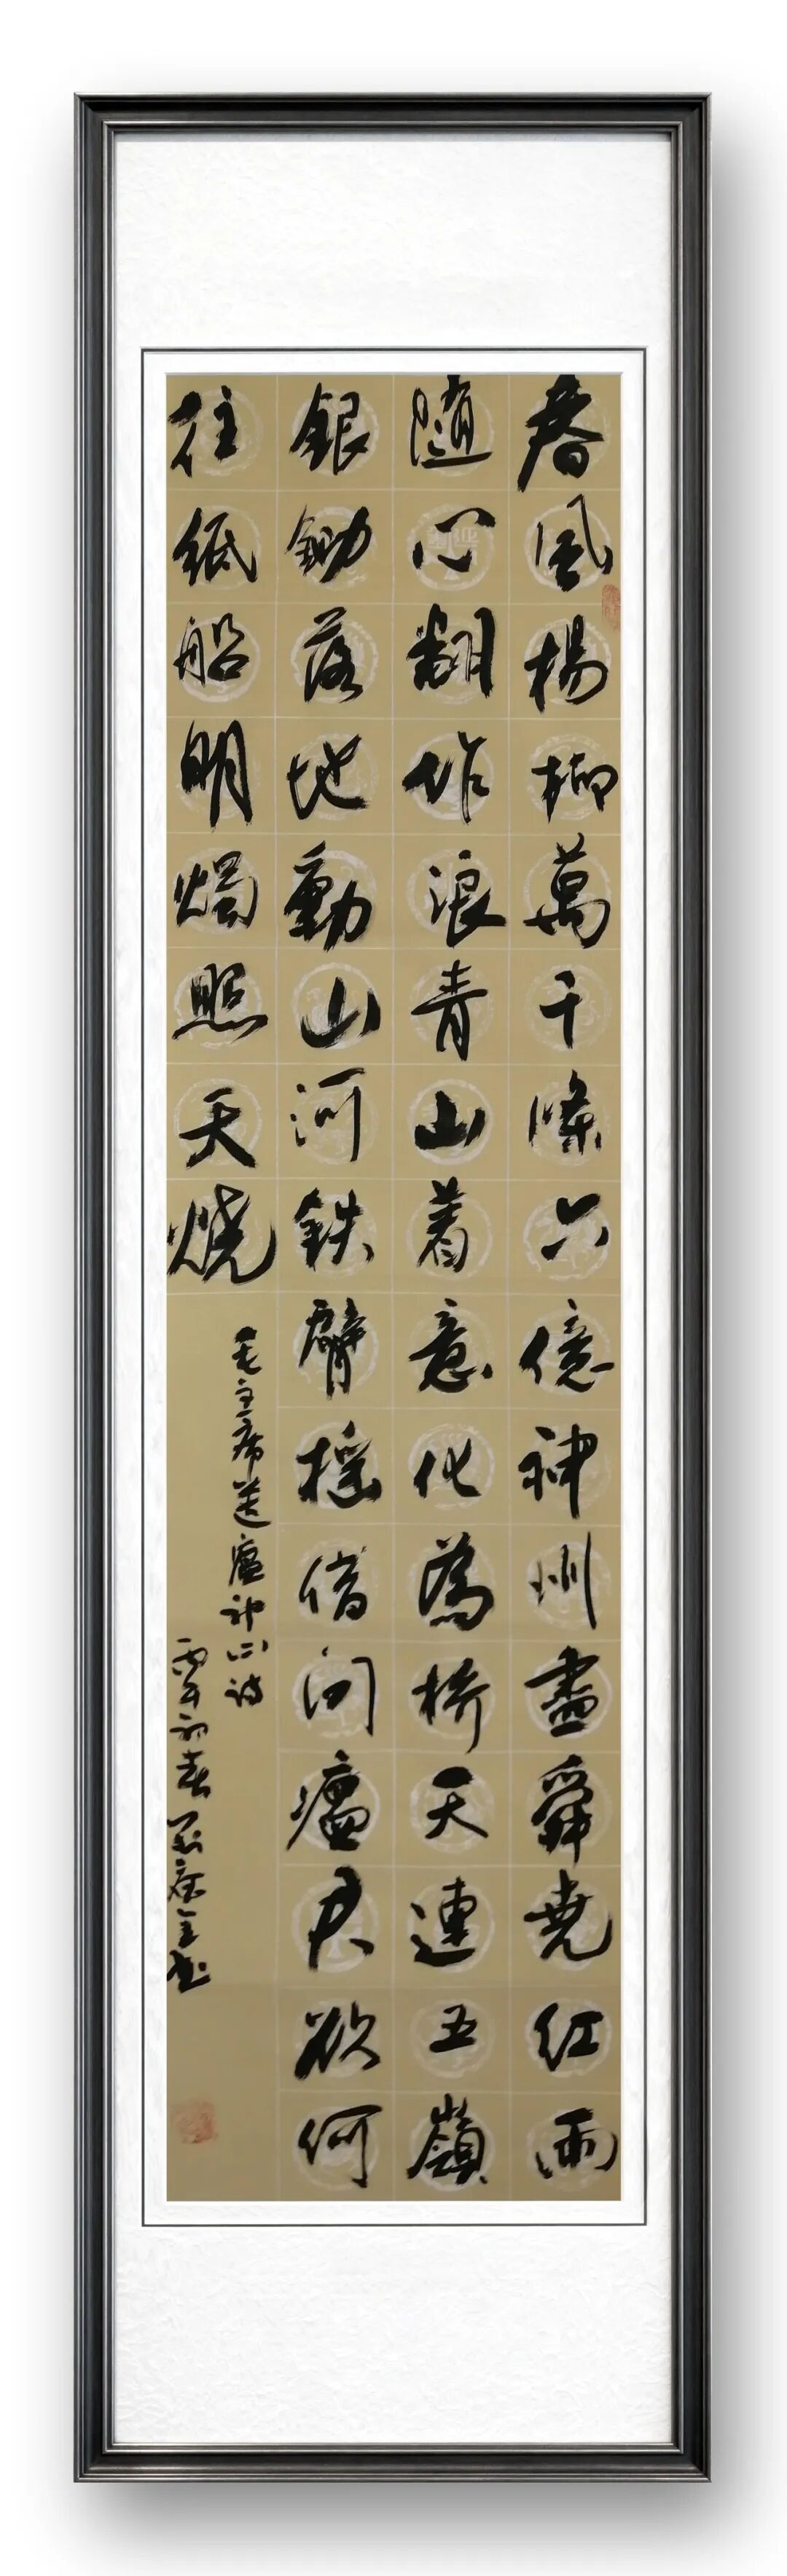 春風楊柳萬千條六億神州盡舜堯紅雨
隨心翻作浪青山着意化為橋天連五嶺
銀鋤落地動山河鉄臂搖借問瘟君欲何
往紙船明燭照天燒
毛主席送瘟神二詩
丙午初春